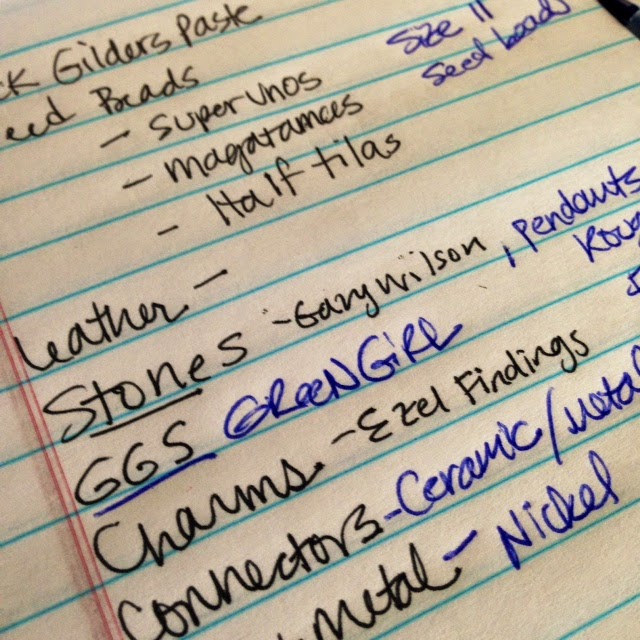 k Gilders Paste
eed Beads Size 11
- Super Unos seed bead
- magatamees
- Half tilas
Leather -
Stones - Gary Wilson, Pendants
GGS GREEN GIRL
Charms. - Ezel Findings
Connectors - Ceramic/Metal
Metal - Nickel